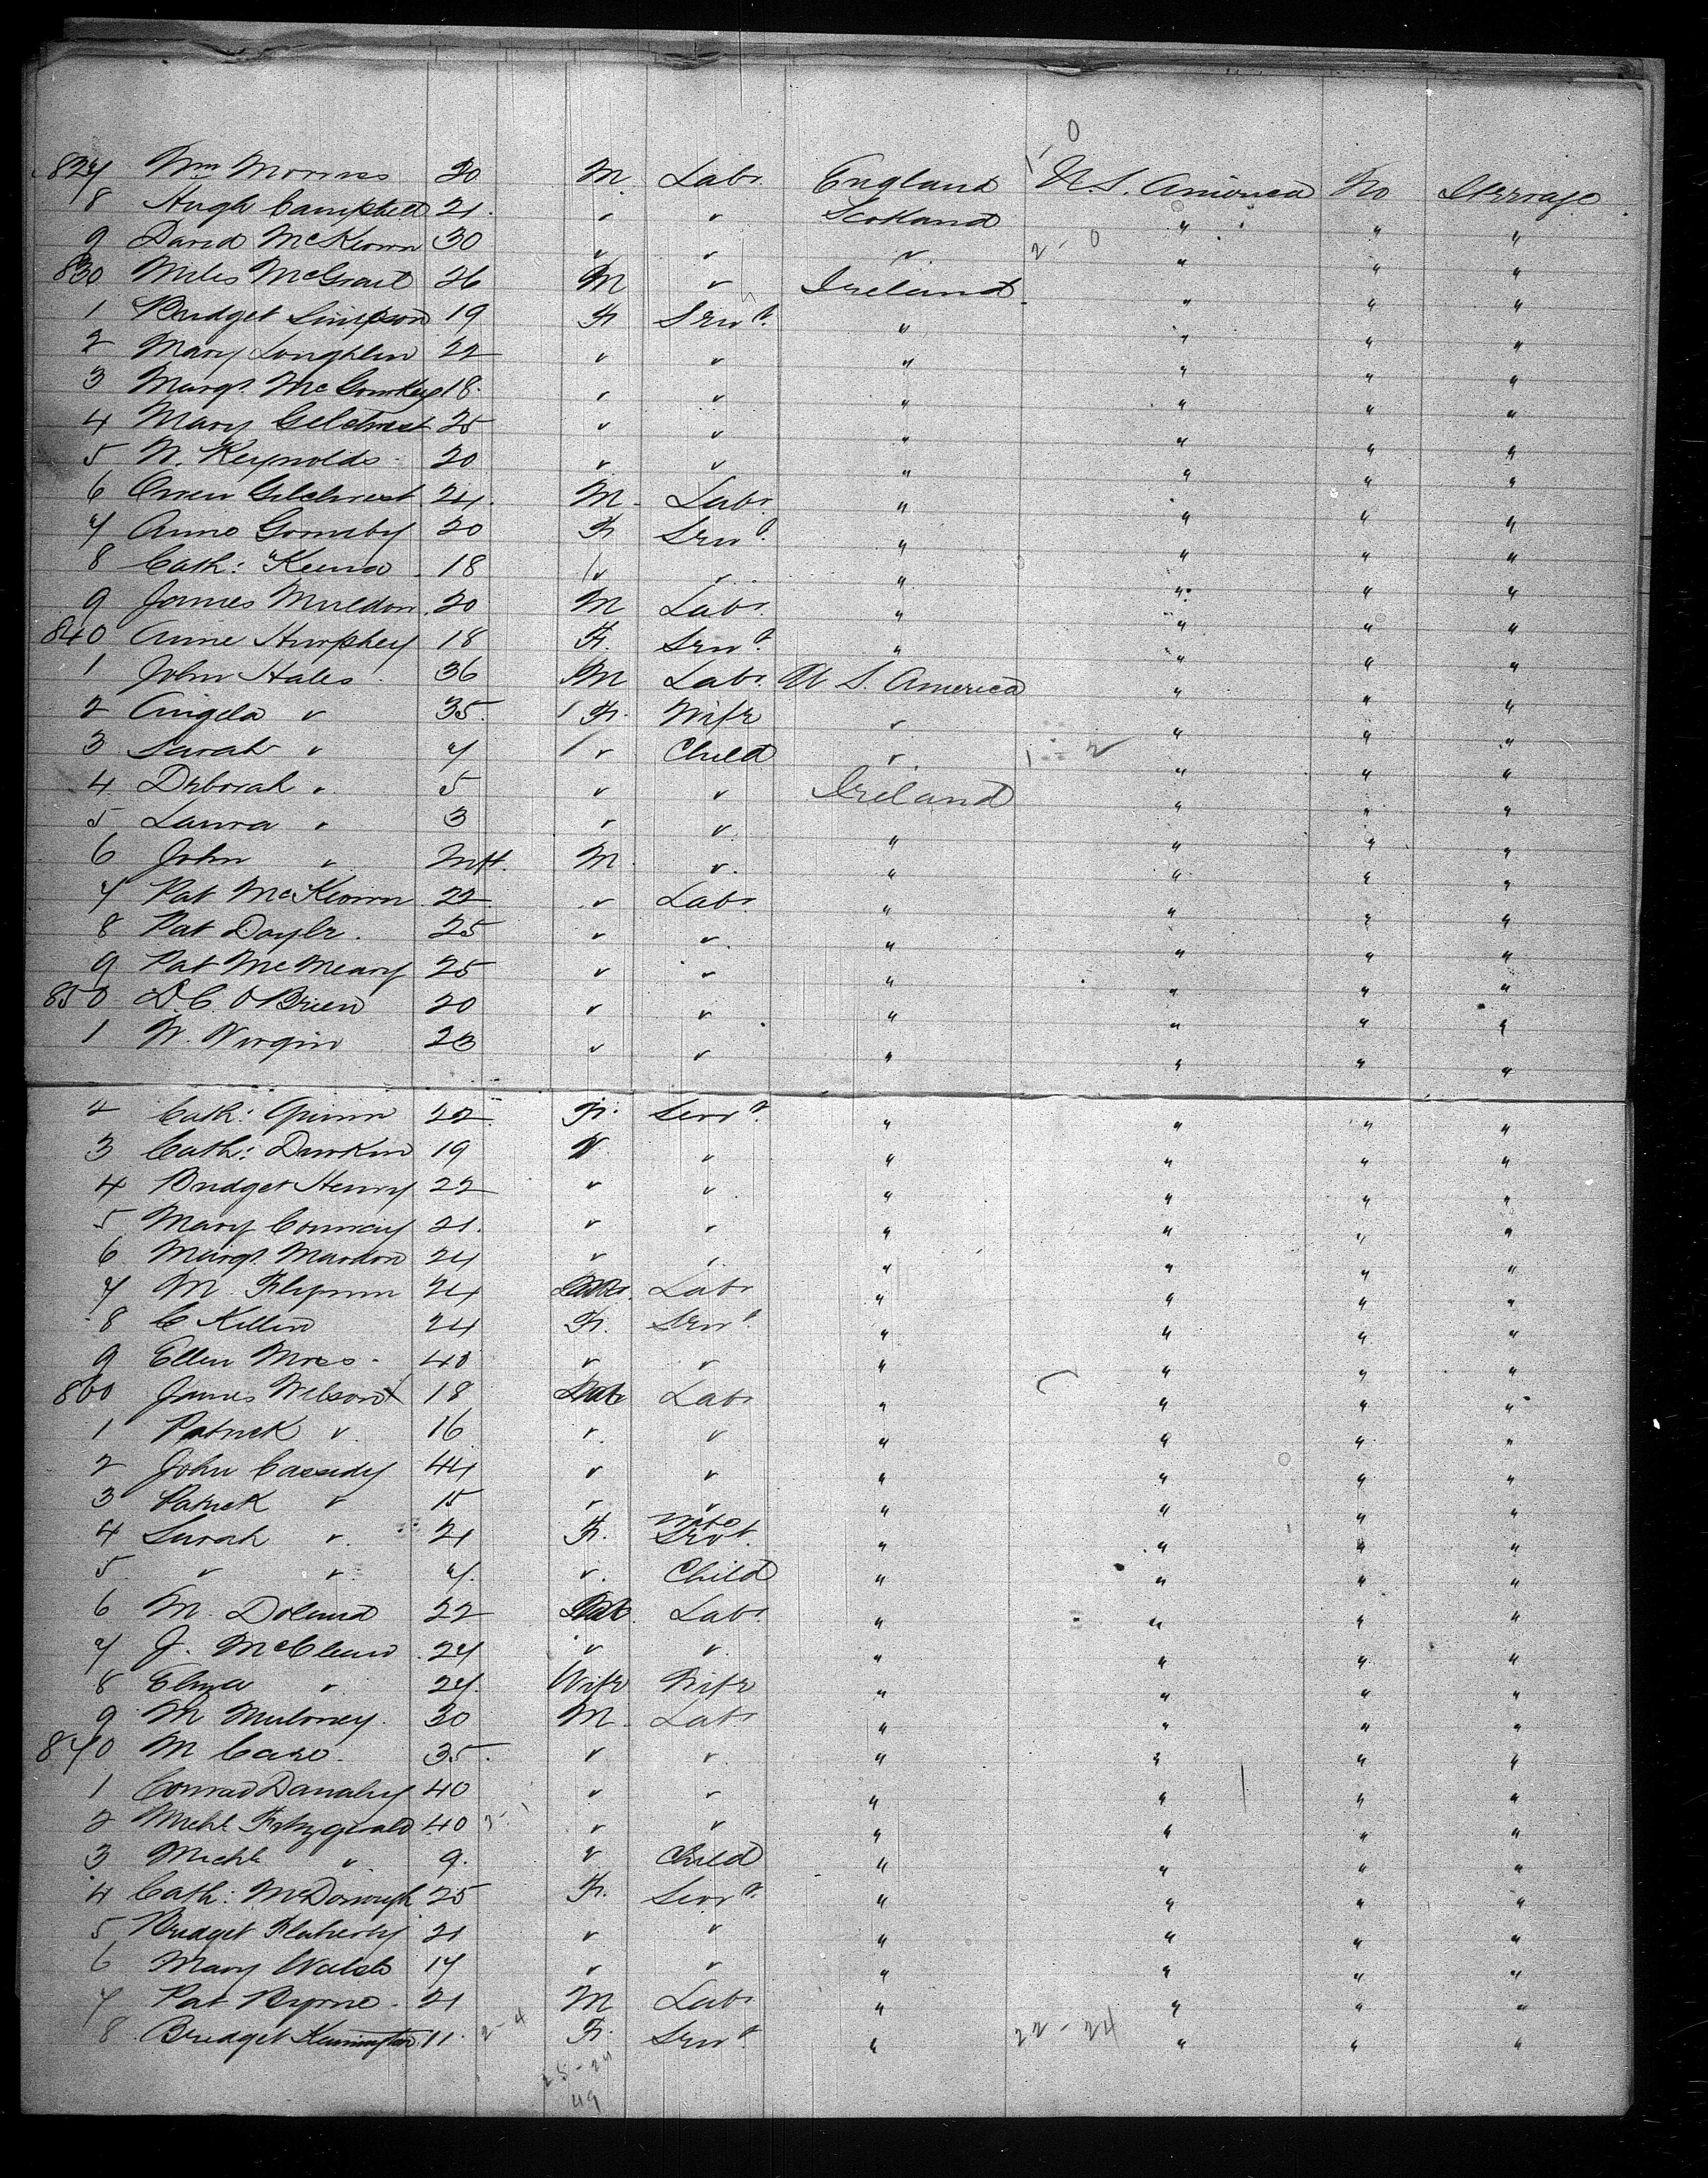 0
827 Wm Morriss 20 M. Labr. England U.S. America No Steerage
8 Hugh Campbell 21. " " Scotland " " "
9 David McKeown 30 " " " 2-0 " " "
830 Miles McGrail 26 M " Ireland " " "
1 Bridget Simpson 19 F. Servt. " " " "
2 Mary Loughlin 22 " " " " " "
3 Margt. 18. " " " " " "
4 Mary Gilchrest 25 " " " " " "
5 N. Reynolds 20 " " " " " "
6 Owen Gilchrest 24. M. Labr. " " " "
7 Anne Gormby 20 F. Servt. " " " "
8 Cath: 18 " " " " " "
9 James Muldon 20 M Labr. " " " "
840 Anne Humphey 18 F. Servt. " " " "
1 John Hales 36 M Labr. U S. America " " "
2 Angela " 35. F. Wife " " " "
3 Sarah " 7 " Child " 1-2 " " "
4 Deborah " 5 " " Ireland " " "
5 Laura " 3 " " " " " "
6 John " Inft. M. " " " " "
7 Pat McKeown 22 " Labr " " " "
8 Pat Doyle 25 " " " " " "
9 Pat 25 " " " " " "
850 D.C. O'Brien 20 " " " " " "
1 W. 23 " " " " " "
2 Cath: Quinn 22. F. Servt. " " " "
3 Cath: Durkin 19 " " " " " "
4 Bridget Henry 22 " " " " " "
5 Mary Conway 21. " " " " " "
6 Margt. Mardon 24 " " " " " "
7 M. Flynn 24 Labr " " " "
8 C Killen 24 F. Servt. " " " "
9 Ellen Moss 40 " " " " " "
860 James Wilson 18 Labr " " " "
1 Patrick " 16 " " " " " "
2 John Cassidy 44 " " " " " "
3 Patrick " 15 " " " " " "
4 Sarah " 21 F. Servt. " " " "
5 " " 7. " Child " " " "
6 M. Doland 22 Labr. " " " "
7 J. McClean 24 " " " " " "
8 Eliza " 24. Wife Wife " " " "
9 M Muloney 30 M. Labr " " " "
870 M 35. " " " " " "
1 Conrad Danahy 40 " " " " " "
2 Michl Fitzgerald 40 " " " " " "
3 Michl " 9. " Child " " " "
4 Cath: McDonough 25 F. Servt. " " " "
5 Bridget Flaherty 21 " " " " " "
6 Mary Walsh 17 " " " " " "
7 Pat Byrne 21 M Labr " " " "
8 Bridget Kennington 11. 2-4 F. Servt. " 22-24 " " "
25-24
49